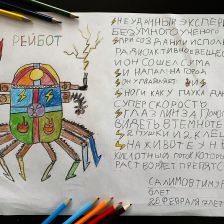 РЕЙБОТ
НЕУДАЧНЫЙ ЭКСПЕР
БЕЗУМНОГО УЧЕНОГО
ПРИ СОЗДАНИИ ИСПОЛЬ
РАДИОАКТИВНОЕ ВЕЩЕС
И ОН СОШЕЛ С УМА
И НАПАЛ НА ГОРОД
ОН УПРАВЛЯЕТ
НОГИ КАК У ПАУКА
СУПЕР СКОРОСТЬ
ГЛАЗ
ВИДЕТЬ В ТЕМНОТЕ
ПУШКИ ИЗ КЛЕ
НА ЖИВОТЕ
КИСЛОТНЫЙ КОТОР
РАСТВОРЯЕТ
САЛИМОВ ТИМУР
6 ЛЕТ
28 ФЕВРАЛЯ